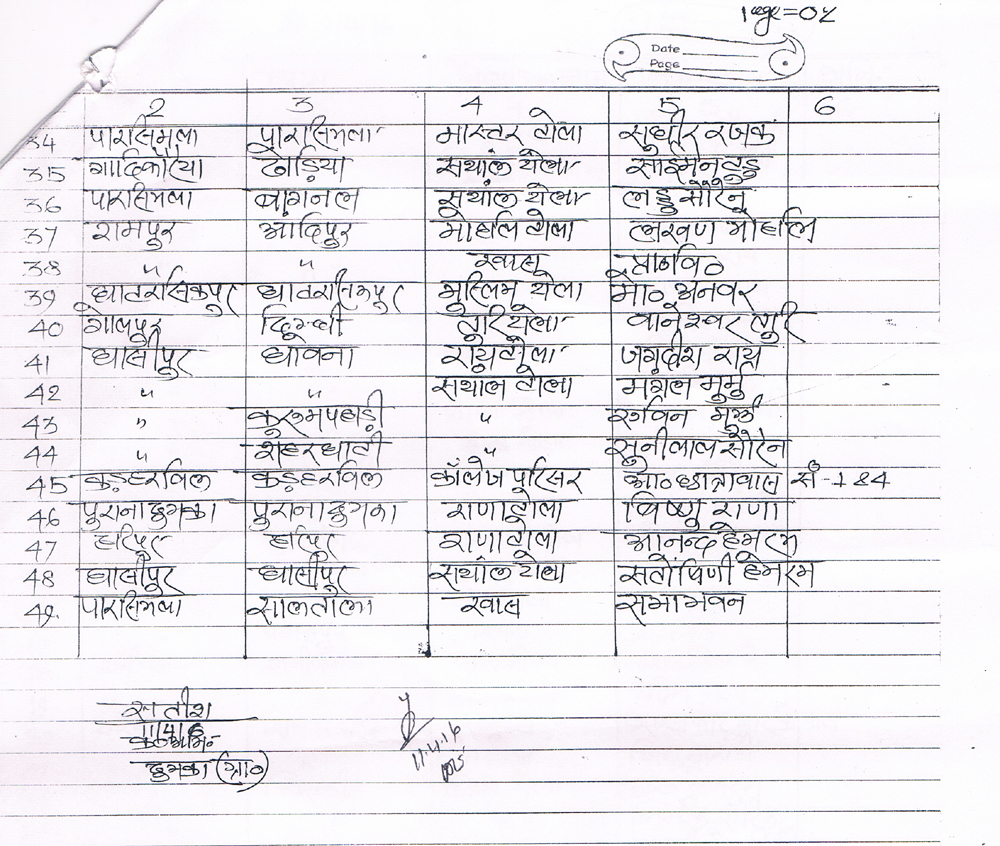 Page=02
Date
Page
2 3 4 5 6
34 पारसिमला पारसिमला मास्टर टोला सुधीर रजक
35 गादिकोरैया ढोड़िया सथाल टोला साइमन टुडु
36 पारसिमला बागनल सथाल टोला लडु सोरेन
37 रामपुर आदिपुर मोहलि टोला लखण मोहलि
38 " " स्कूल प्रा०वि०
39 घाटरसिकपुर घाटरसिकपुर मुस्लिम टोला मो० अनवर
40 गोलपुर तुरिटोला वानेश्वर तुरि
41 घासीपुर धावना रायटोला जगदीश राय
42 " " सथाल टोला मंगल मुर्मु
43 " कुरूमपहाड़ी " रूविन मुर्मू
44 " शहरघाटी " सुनीलाल सोरेन
45 कड़हरविल कड़हरविल कॉलेज परिसर आ० छात्रावास सं -184
46 पुराना दुमका पुराना दुमका राणाटोला विष्णु राणा
47 हरिपुर हरिपुर राणाटोला आनन्द हेमरम
48 घासीपुर घासीपुर सथाल टोला संतोषिणी हेमरम
49 पारसिमला सालतोला स्कूल सभाभवन
सतीश
11/4/6
क०अभि०
दुमका (ग्रा०)
11.4.16